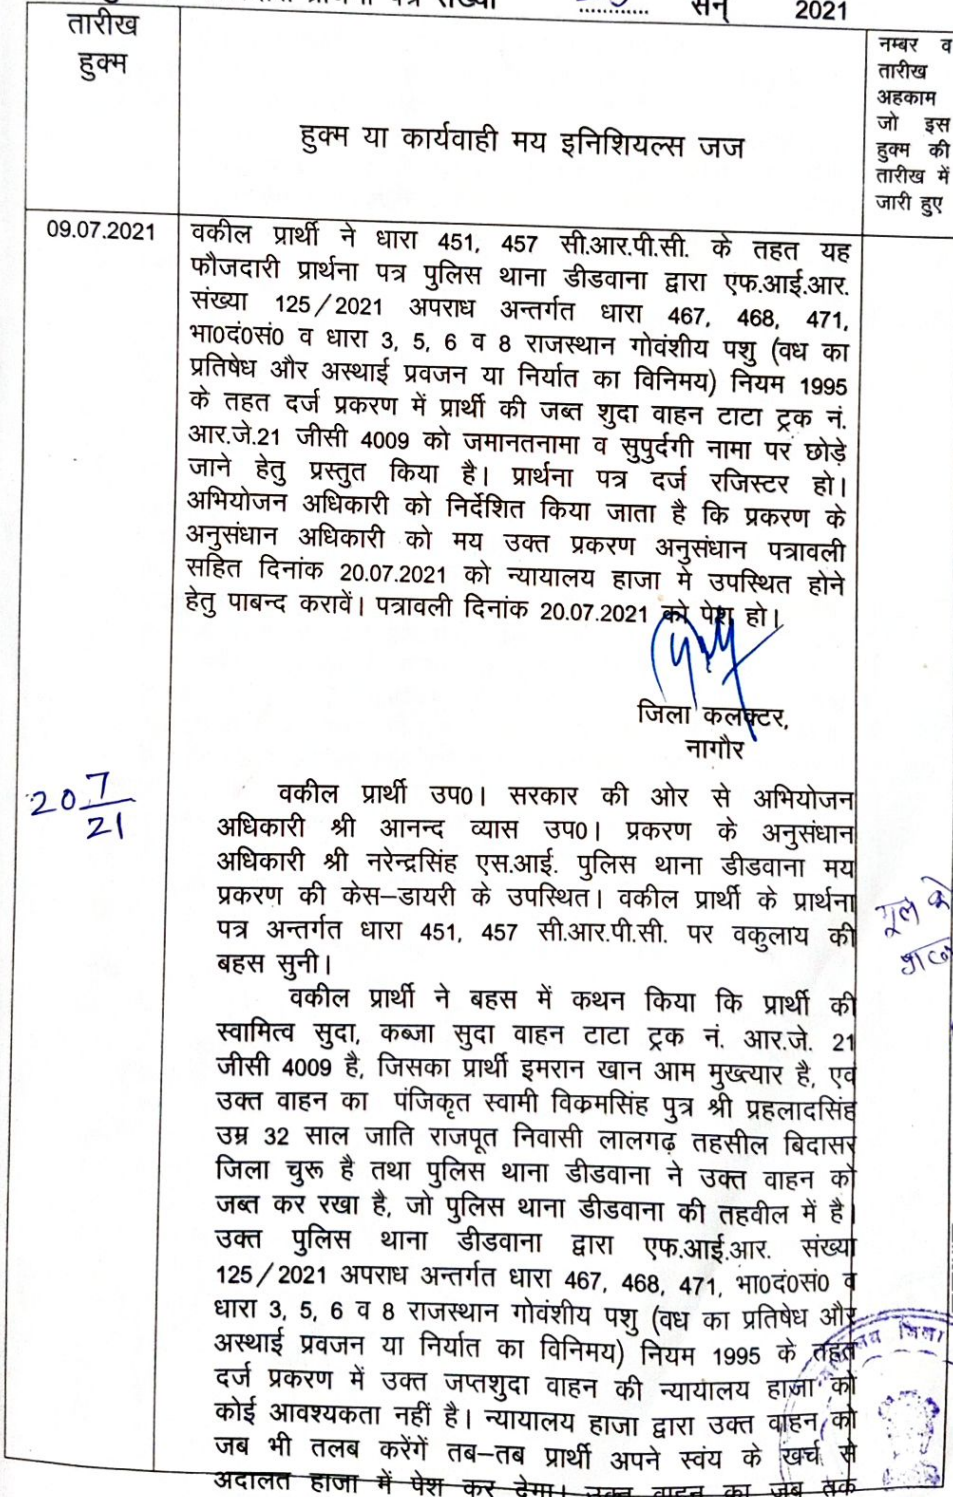 सन् 2021
तारीख
हुक्म
हुक्म या कार्यवाही मय इनिशियल्स जज
नम्बर व
तारीख
अहकाम
जो इस
हुक्म की
तारीख में
जारी हुए
09.07.2021
वकील प्रार्थी ने धारा 451, 457 सी.आर.पी.सी. के तहत यह
फौजदारी प्रार्थना पत्र पुलिस थाना डीडवाना द्वारा एफ.आई.आर.
संख्या 125/2021 अपराध अन्तर्गत धारा 467, 468, 471,
भा0दं0सं0 व धारा 3, 5, 6 व 8 राजस्थान गोवंशीय पशु (वध का
प्रतिषेध और अस्थाई प्रवजन या निर्यात का विनिमय) नियम 1995
के तहत दर्ज प्रकरण में प्रार्थी की जब्त शुदा वाहन टाटा ट्रक नं.
आर.जे.21 जीसी 4009 को जमानतनामा व सुपुर्दगी नामा पर छोड़े
जाने हेतु प्रस्तुत किया है। प्रार्थना पत्र दर्ज रजिस्टर हो।
अभियोजन अधिकारी को निर्देशित किया जाता है कि प्रकरण के
अनुसंधान अधिकारी को मय उक्त प्रकरण अनुसंधान पत्रावली
सहित दिनांक 20.07.2021 को न्यायालय हाजा मे उपस्थित होने
हेतु पाबन्द करावें। पत्रावली दिनांक 20.07.2021 को पेश हो।
जिला कलक्टर,
नागौर
20 7/21
वकील प्रार्थी उप0। सरकार की ओर से अभियोजन
अधिकारी श्री आनन्द व्यास उप0। प्रकरण के अनुसंधान
अधिकारी श्री नरेन्द्रसिंह एस.आई. पुलिस थाना डीडवाना मय
प्रकरण की केस–डायरी के उपस्थित। वकील प्रार्थी के प्रार्थना
पत्र अन्तर्गत धारा 451, 457 सी.आर.पी.सी. पर वकुलाय की
बहस सुनी।
वकील प्रार्थी ने बहस में कथन किया कि प्रार्थी की
स्वामित्व सुदा, कब्जा सुदा वाहन टाटा ट्रक नं. आर.जे. 21
जीसी 4009 है, जिसका प्रार्थी इमरान खान आम मुख्त्यार है, एवं
उक्त वाहन का पंजिकृत स्वामी विकमसिंह पुत्र श्री प्रहलादसिंह
उम्र 32 साल जाति राजपूत निवासी लालगढ़ तहसील बिदासर
जिला चुरू है तथा पुलिस थाना डीडवाना ने उक्त वाहन को
जब्त कर रखा है, जो पुलिस थाना डीडवाना की तहवील में है।
उक्त पुलिस थाना डीडवाना द्वारा एफ.आई.आर. संख्या
125/2021 अपराध अन्तर्गत धारा 467, 468, 471, भा0दं0सं0 व
धारा 3, 5, 6 व 8 राजस्थान गोवंशीय पशु (वध का प्रतिषेध और
अस्थाई प्रवजन या निर्यात का विनिमय) नियम 1995 के तहत
दर्ज प्रकरण में उक्त जप्तशुदा वाहन की न्यायालय हाजा को
कोई आवश्यकता नहीं है। न्यायालय हाजा द्वारा उक्त वाहन को
जब भी तलब करेंगें तब–तब प्रार्थी अपने स्वंय के खर्च से
अदालत हाजा में पेश कर देगा। उक्त वाहन का जब तक
जिला